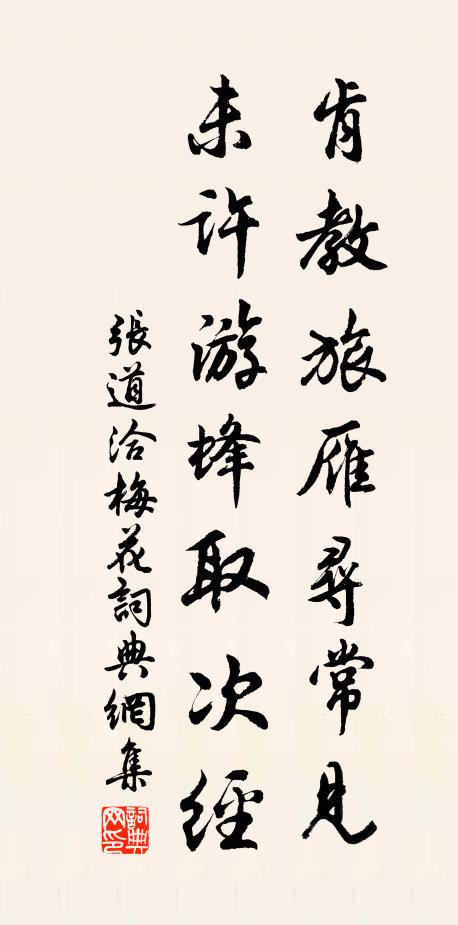 肯教旅雁尋常見
未許游蜂取次經
張道洽梅花詞典網集
詞典网印